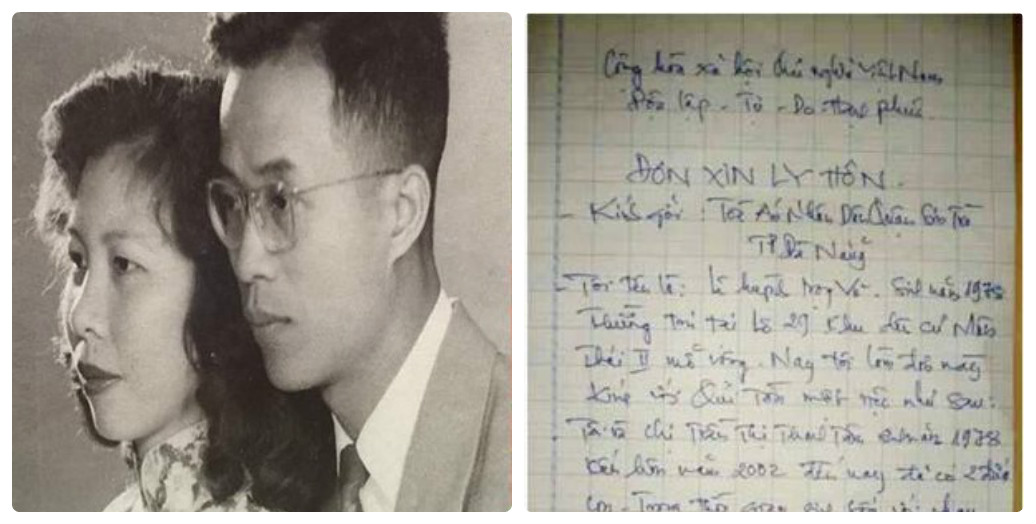 Cộng hòa xã hội chủ nghĩa Việt Nam
Độc lập - Tự - Do - Hạnh phúc
ĐƠN XIN LY HÔN.
- Kính gởi : Toà Án Nhân Dân Quận Sơn Trà
TP Đà Nẵng
- Tôi tên là: Sinh năm
Thường trú tại Lô 29 Khu dân cư Mân
Thái II mở rộng. Nay tôi làm đơn này
Kính với Quí Toà một việc như sau:
- Tôi và chị Trần Thị sinh năm 1978
Kết hôn năm 2002 đến nay đã có 2 đứa
con. Trong thời gian